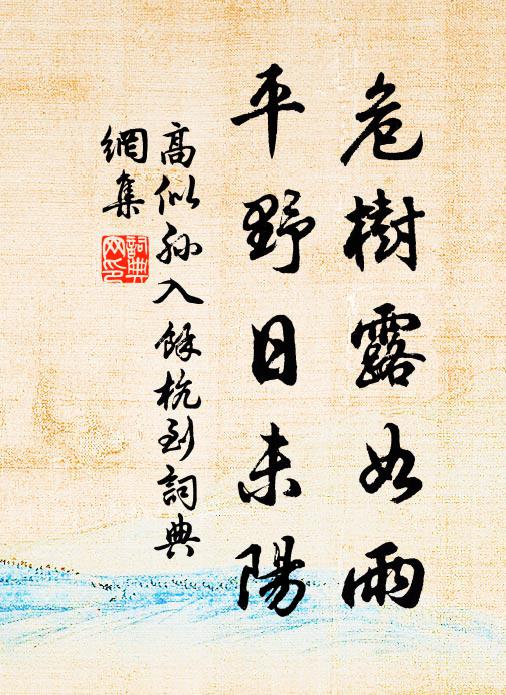 危樹露如雨
平野日未陽
高似孫入餘杭到詞典
網集
詞典
网印